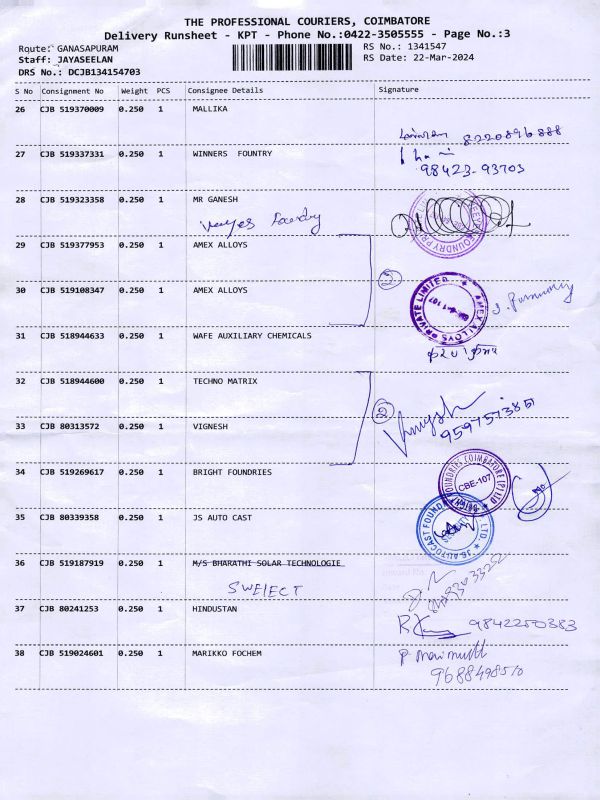 THE PROFESSIONAL COURIERS, COIMBATORE
Delivery Runsheet - KPT - Phone No.:0422-3505555 - Page No.:3
Route: GANASAPURAM RS No.: 1341547
Staff: JAYASEELAN RS Date: 22-Mar-2024
DRS No.: DCJB134154703
S No Consignment No Weight PCS Consignee Details Signature
26 CJB 519370009 0.250 1 MALLIKA
8220896888
27 CJB 519337331 0.250 1 WINNERS FOUNTRY
98423-93703
28 CJB 519323358 0.250 1 MR GANESH
29 CJB 519377953 0.250 1 AMEX ALLOYS
2
30 CJB 519108347 0.250 1 AMEX ALLOYS
AMEX ALLOYS PRIVATE LIMITED
31 CJB 518944633 0.250 1 WAFE AUXILIARY CHEMICALS
32 CJB 518944600 0.250 1 TECHNO MATRIX
2
33 CJB 80313572 0.250 1 VIGNESH
34 CJB 519269617 0.250 1 BRIGHT FOUNDRIES
CBE-107
35 CJB 80339358 0.250 1 JS AUTO CAST
36 CJB 519187919 0.250 1 M/S BHARATHI SOLAR TECHNOLOGIE
SWELECT
37 CJB 80241253 0.250 1 HINDUSTAN
9842250383
38 CJB 519024601 0.250 1 MARIKKO FOCHEM
9688498510